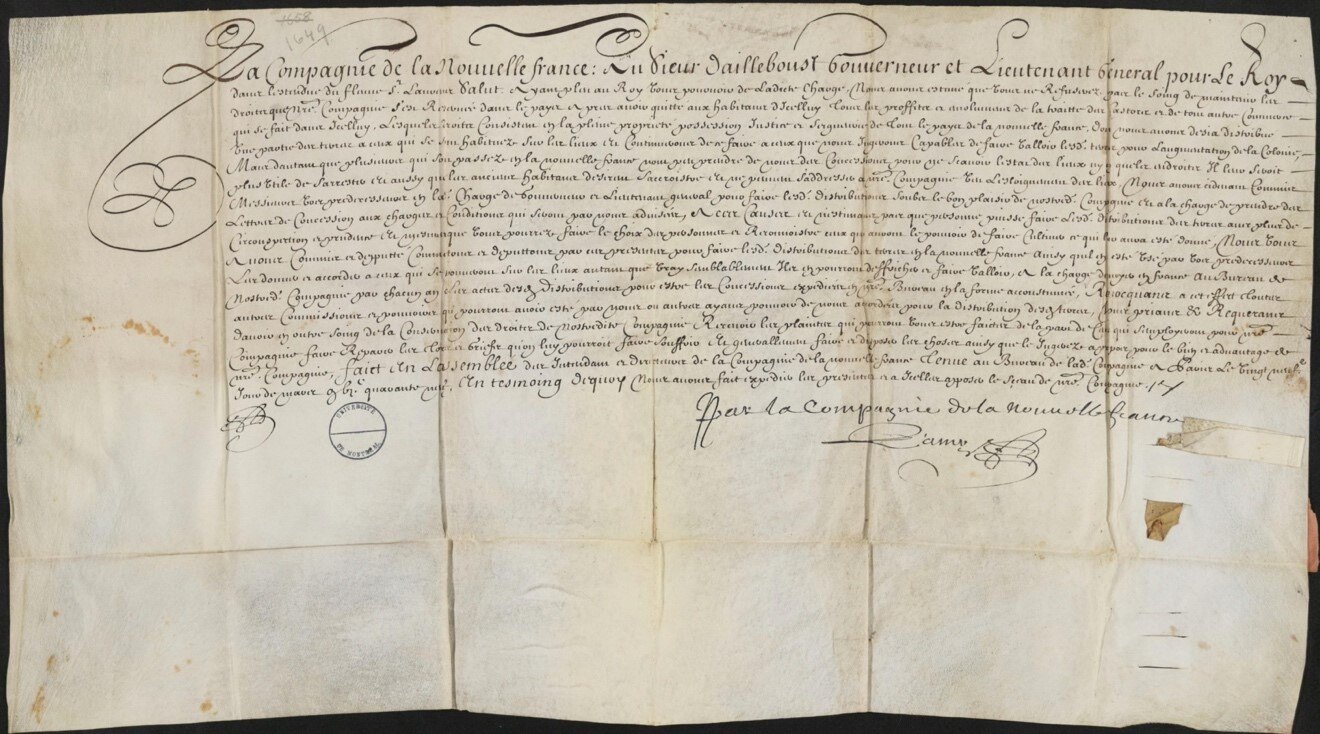 1658
1649
La Compagnie de la Nouvelle france: Au Sieur dailleboust Gouverneur et Lieutenant General pour Le Roy
dans lestendue du fleuve St. Laurens Salut. Ayant pleu au Roy vous pouvoir de ladicte Charge, Nous avons estimé que vous ne Refuserez pas le soing de maintenir les
droits que nre. Compagnie sest Reservé dans le payis et pour avoir quitté aux habitans dIceluy tous les proffits et emolumens de la traitte des Castors et de tout autre Commerce
qui se fait dans Iceluy, Lesquels droits Consistent en la pleine proprieté possession Justice et seigneurie de tout le payis de la nouvelle france, dont nous avons desia distribué
une partie des terres a ceux qui se sont habituez sur les lieux et Continuerons de ce faire a ceux que nous Jugerons Capables de faire valloir lesd. terres pour laugmentation de la Colonie,
Mais dautant que plusieurs qui sont passez en la nouvelle france nont peu prendre de nous des Concessions pour ne scavoir lestat des lieux ny quels endroits Il leur seroit
plus utile de sarrester et aussy que les anciens habitans desirent saccroistre et ne peuvent saddresser a nre. Compagnie veu lesloignement des lieux, Nous avons cidevant Commis
Messieurs vos predecesseurs en lad. Charge de Gouverneur et Lieutenant general pour faire lesd. distributions soubs le bon plaisir de nostred. Compagnie et a la charge de prendre des
Lettres de Concession aux charges et Conditions qui seront par nous advisées, A ces Causes et nestimant pas que personne puisse faire lesd. distributions des terres avec plus de
Circonspection et prudence et mesme que vous pourrez faire le choix des personnes et Reconnoistre ceux qui auront le pouvoir de faire Cultiver ce qui leur aura esté donné, Nous vous
Avons Commis et depputté Commettons et depputtons par ces presentes pour faire lesd. distributions des terres en la nouvelle france Ainsy quil en esté usé par vos predecesseurs
Les donner et accorder a ceux qui se trouveront sur les lieux autant que vray semblablement Ils en pourront deffricher et faire valloir, A la charge denvoyer en france au Bureau de
Nostred. Compagnie par chacun an les actes desd. Distributions pour estre les Concessions expediées en nre. Bureau en la forme accoustumée, Revocquant a cet effect toutes
autres Commissions et pouvoirs qui pourront avoir esté par nous ou autres ayans pouvoir de nous accordez pour la distribution desd. terres, Vous prians & Requerans
davoir en outre soing de la Conservation des droits de Nostredite Compagnie Recevoir les plaintes qui pourront vous estre faictes de la part de Ceux qui semployeront pour nre.
Compagnie faire Reparer les torts et griefs quon luy pourroit faire souffrir et generallement faire et disposer les choses ainsy que le Jugerez apropos pour le bien et advantage de
nre. Compagnie, faict En Lassemblée des Intendant et directeurs de la Compagnie de la nouvelle france tenue au Bureau de lad. Compagnie a Paris le vingt
Jour de mars vjc quarante neuf, En tesmoing dequoy Nous avons fait expedier les presentes et a Icelles apposé le sceau de nre. Compagnie
Par la Compagnie de la Nouvelle france
Lamy
UNIVERSITÉ
DE MONTRÉAL